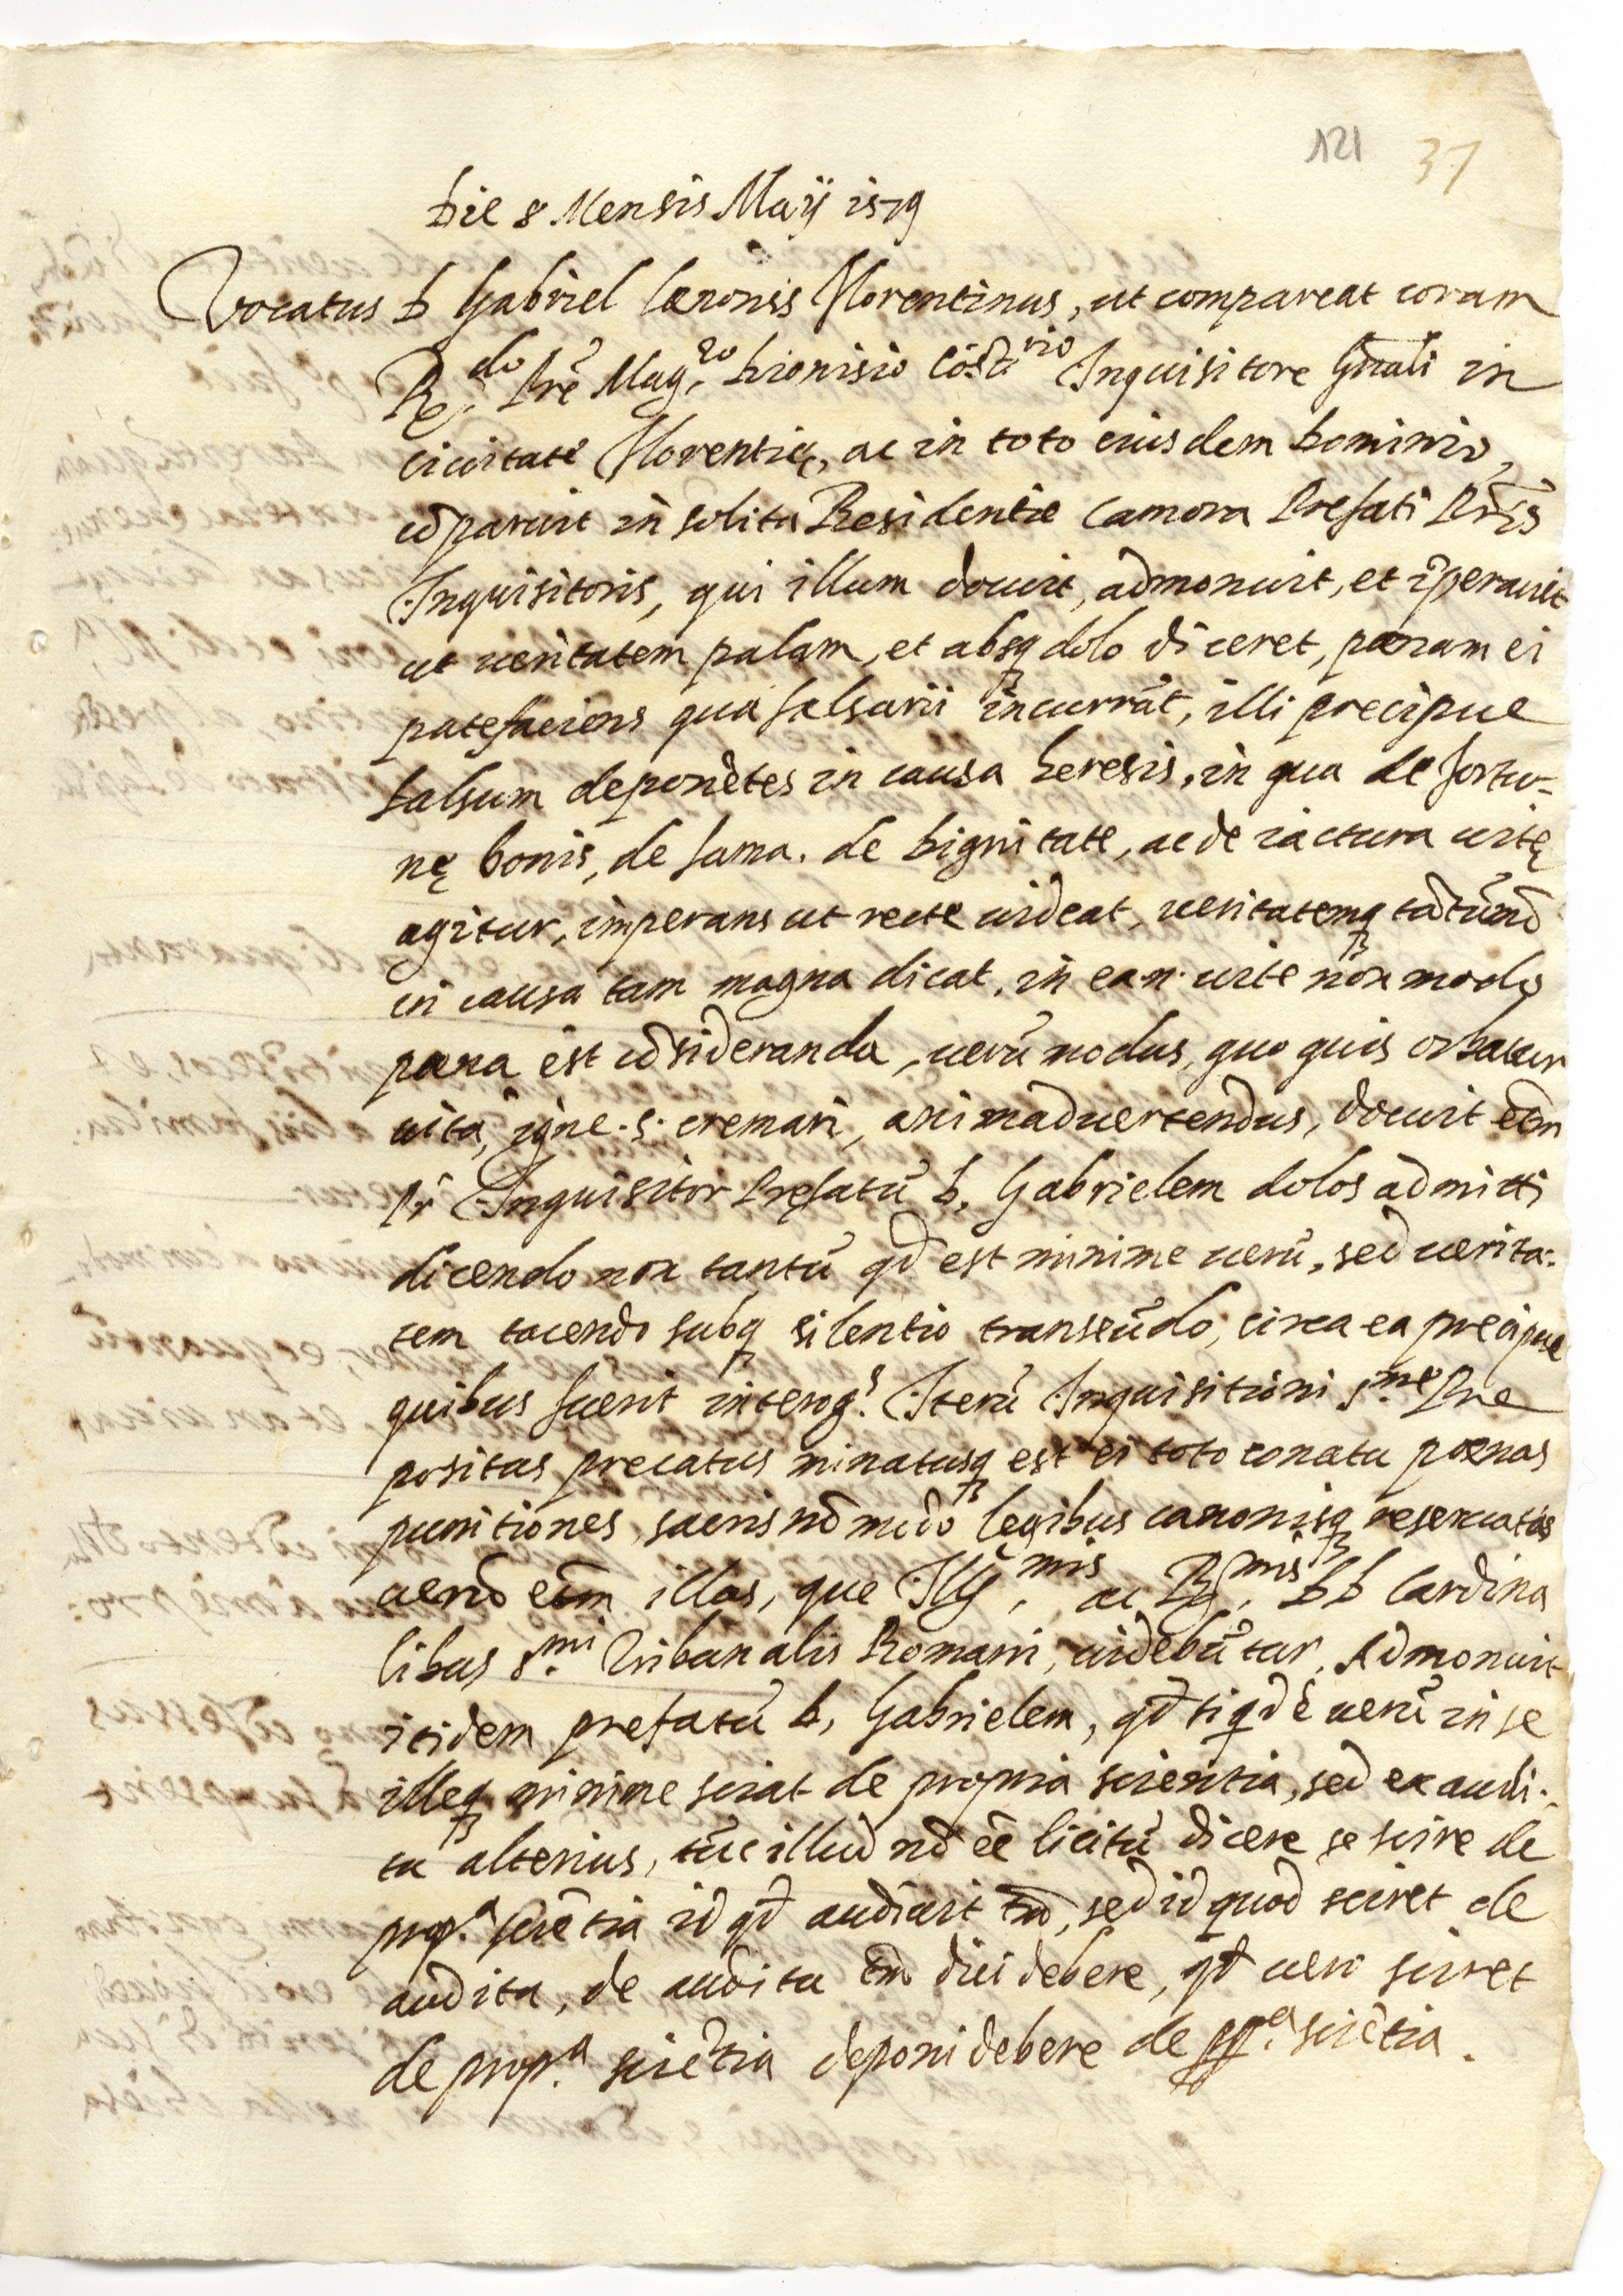 121 37
Die 8 Mensis Maij 1579
Vocatus D Gabriel Caronis Florentinus, ut compareat coram
R.do Prē Mag.ro Dionisio Cōst.rio Inquisitore Gn̄ali in
civitate Florentię, ac in toto eiusdem Dominio,
cōparuit in solita Residentie Camora Prefati Pr̄is
Inquisitoris, qui illum docuit, admonuit, et īperauit
ut ueritatem palam, et absq dolo diceret, pœnam ei
patefaciens quā falsarii incurrūt, illi precipue
falsum deponētes in causa heresis, in qua de fortu-
nę bonis, de fama. de Dignitate, ac de iactura uitę
agitur, imperans ut recte uideat, ueritatemq tātūmō
in causa tam magna dicat, in ea n. uite non modo
pœna est cōsideranda, uerū modus, quo quis orbatur
uita, igne .s. cremari, animaduertendus, docuit etm̄
Pr̄ Inquisitor Pręfatū D. Gabrielem dolos admitti
dicendo non tantū qđ est minime uerū, sed uerita-
tem tacendo subq silentio transeūdo, circa ea precipue
quibus fuerit interog.s Iterū Inquisitioni s.me Pre
positus precatus minatusq est ei toto conatu poenas
punitiones, sacris nō modo legibus canonisq reseruatas
uerū etm̄ illas, que Ill.mis, ac R.mis DD Cardina
libus s.mi Tribunalis Romani, uidebūtur. Admonuit
itidem prefatū D, Gabrielem, qđ si qđ ē uerū in se
illeq minime sciat de propria scientia, sed ex audi-
tu alterius, tūc illud nō eē licitū dicere se scire de
prop.a sciētia id qđ audiuit tm̄, sed id quod sciret de
audita, de auditu tm̄ dici debere, qđ uero sciret
de prop.a sciētia deponi debere de pp.a sciētia.